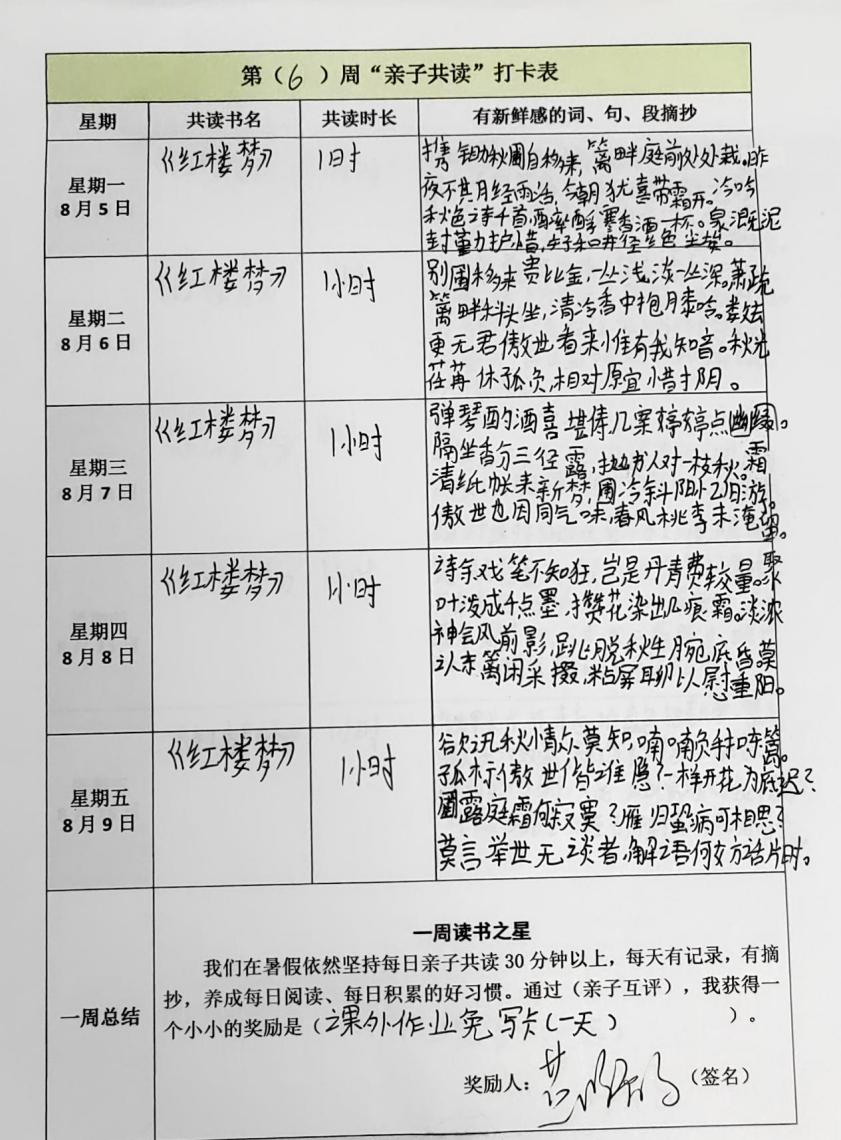 第（6）周“亲子共读”打卡表
星期 共读书名 共读时长 有新鲜感的词、句、段摘抄
星期一
8月5日
《红楼梦》
1时
携锄秋圃自移来,篱畔庭前处处栽。昨
夜不期月经雨活,今朝犹喜带霜开。冷吟
秋色诗千首,酹寒香酒一杯。泉溉泥
封勤护惜,好和井径尘埃。
星期二
8月6日
《红楼梦》
1小时
别圃移来贵比金,一丛浅淡一丛深。萧疏
篱畔科头坐,清冷香中抱膝吟。数去
更无君傲世,看来惟有我知音。秋光
荏苒休孤负,相对原宜惜寸阴。
星期三
8月7日
《红楼梦》
1小时
弹琴酌酒喜堪俦,几案婷婷点幽绿。
隔坐香分三径露,抛书人对一枝秋。霜
清纸帐来新梦,圃冷斜阳忆旧游。
傲世也因同气味,春风桃李未淹留。
星期四
8月8日
《红楼梦》
1小时
诗余戏笔不知狂,岂是丹青费较量。聚
叶泼成千点墨,攒花染出几痕霜。淡浓
神会风前影,跳脱秋生腕底香。莫
认东篱闲采掇,粘屏聊以慰重阳。
星期五
8月9日
《红楼梦》
1小时
欲讯秋情尔莫知,喃喃负手叩东篱。
孤标傲世偕谁隐?一样开花为底迟?
圃露庭霜何寂寞?雁归蛩病可相思?
莫言举世无谈者,解语何妨话片时。
一周总结
一周读书之星
我们在暑假依然坚持每日亲子共读30分钟以上，每天有记录，有摘
抄，养成每日阅读、每日积累的好习惯。通过（亲子互评），我获得一
个小小的奖励是（课外作业免写卡(一天) ）。
奖励人：（签名）